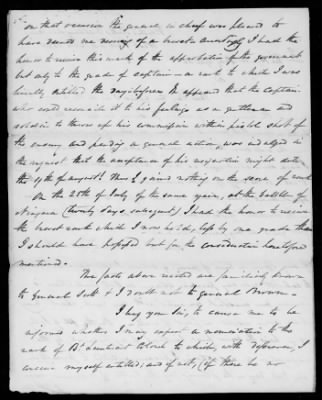 on that occasion the general in chief was pleased to
have deemed me worthy of a brevet & accordingly I had the
honor to receive this mark of the approbation of the government
but only to the grade of captain – a rank to which I was
lineally entitled the day before. It appeared that the captain
who could reconcile it to his feelings as a gentleman and
soldier to throw up his commission within pistol shot of
the enemy and pending a general action, was indulged in
the request that the acceptance of his resignation might date
the of august! Thus I gained nothing on the score of rank
– On the 25th of July of the same year, at the battle of
Niagara (twenty days subsequent) I had the honor to receive
the brevet rank which I now hold, less by one grade than
I should have possessed but for the consideration heretofore
mentioned –
The facts above recited are familiarly known
to General Scott & I doubt not to General Brown –
I beg you Sir, to cause me to be
informed whether I may expect a nomination to the
rank of Bt. Lieutenant Colonel to which, with deference, I
conceive myself entitled; and if not, (if there be no